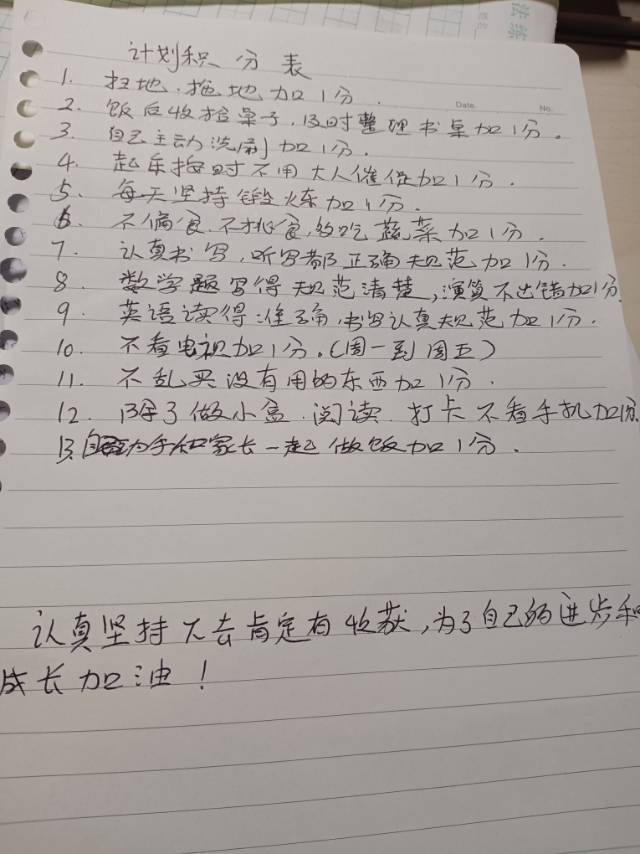 法练
姓名
计划积分表
Date. No.
1. 扫地、拖地加1分.
2. 饭后收拾桌子,及时整理书桌加1分.
3. 自己主动洗刷加1分.
4. 起床按时不用大人催促加1分.
5. 每天坚持锻炼加1分.
6. 不偏食.不挑食,多吃蔬菜加1分.
7. 认真书写,听写都正确规范加1分.
8. 数学题写得规范清楚,演算不出错加1分
9. 英语读得准确,书写认真规范加1分.
10. 不看电视加1分.(周一到周五)
11. 不乱买没有用的东西加1分.
12. 除了做小盒.阅读.打卡不看手机加1分.
13.自己动手和家长一起做饭加1分.
认真坚持下去肯定有收获,为了自己的进步和
成长加油!